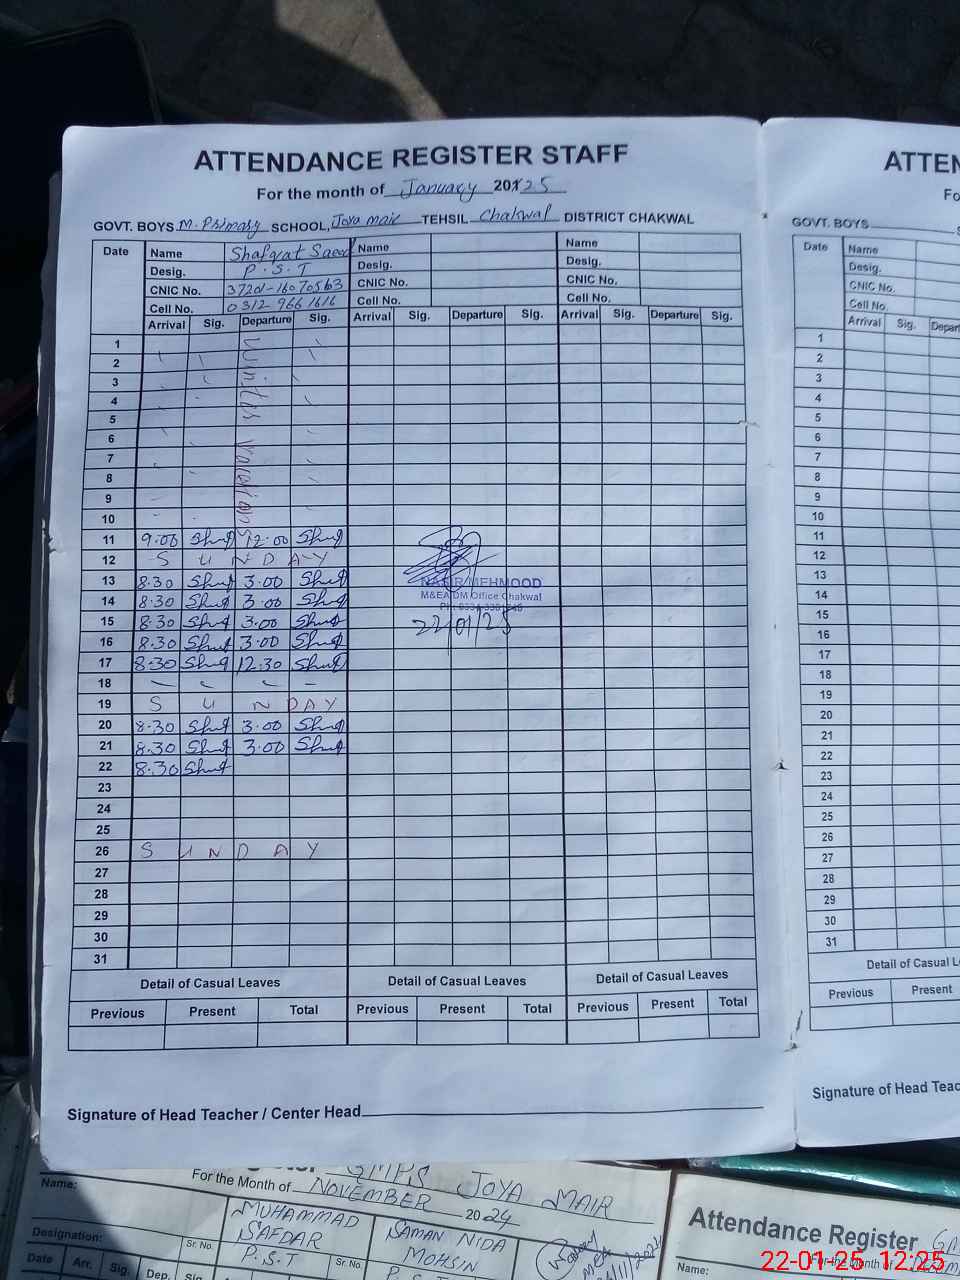 ATTENDANCE REGISTER STAFF
For the month of January 2025
GOVT. BOYS M. Primary SCHOOL, Joya Mair TEHSIL Chakwal DISTRICT CHAKWAL
Date Name Shafqat Saeed Name Name
Desig. P.S.T Desig. Desig.
CNIC No. CNIC No. CNIC No.
Cell No. 0312 9661616 Cell No. Cell No.
Arrival Sig. Departure Sig. Arrival Sig. Departure Sig. Arrival Sig. Departure Sig.
Winter Vacations
1
2
3
4
5
6
7
8
9
10
11 9.00 12.00
12 S U N D A Y
13 8.30 3.00
14 8.30 3.00
15 8.30 3.00
16 8.30 3.00
17 8.30 12.30
18
19 S U N D A Y
20 8.30 3.00
21 8.30 3.00
22 8.30
23
24
25
26 S U N D A Y
27
28
29
30
31
NASIR MEHMOOD
M&EA DM Office Chakwal
22/01/25
Detail of Casual Leaves Detail of Casual Leaves Detail of Casual Leaves
Previous Present Total Previous Present Total Previous Present Total
Signature of Head Teacher / Center Head
ATTEN
Fo
GOVT. BOYS
Date Name
Desig.
CNIC No.
Cell No.
Arrival Sig. Depart
1
2
3
4
5
6
7
8
9
10
11
12
13
14
15
16
17
18
19
20
21
22
23
24
25
26
27
28
29
30
31
Detail of Casual L
Previous Present
Signature of Head Teac
GMPS JOYA MAIR
For the Month of NOVEMBER 2024
Name: MUHAMMAD SAFDAR SAMAN NIDA MOHSIN
Designation: Sr. No. P.S.T Sr. No.
Date Arr. Sig. Dep.
Attendance Register
For the Month of
Name:
22-01-25 12:25